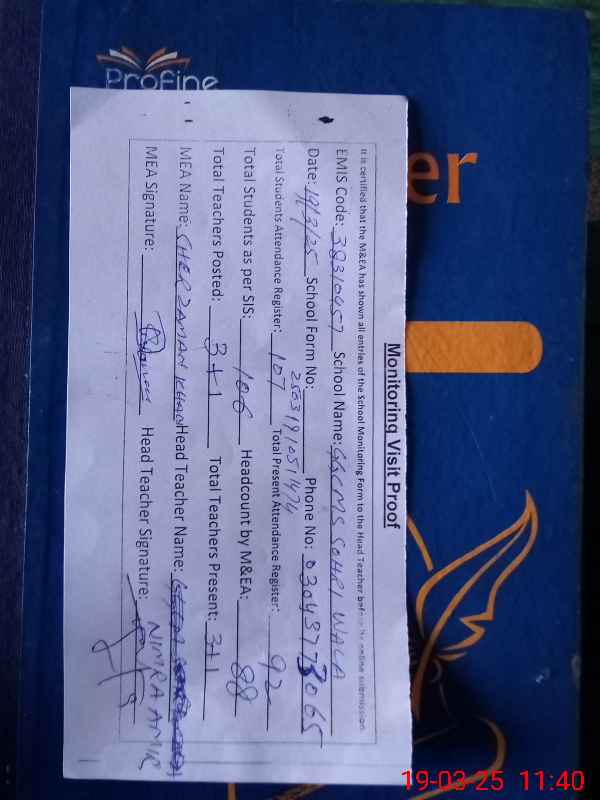 Profine
er
Monitoring Visit Proof
It is certified that the M&EA has shown all entries of the School Monitoring Form to the Head Teacher before its online submission
EMIS Code: 38310457 School Name: GGCMS SOHRI WALA
Date: 19/3/25 School Form No: 25031910511474 Phone No: 03043773065
Total Students Attendance Register: 107 Total Present Attendance Register: 92
Total Students as per SIS: 106 Headcount by M&EA: 88
Total Teachers Posted: 3+1 Total Teachers Present: 3+1
MEA Name: SHER ZAMAN KHAN Head Teacher Name: NIMRA AMIR
MEA Signature: Head Teacher Signature:
19-03-25 11:40